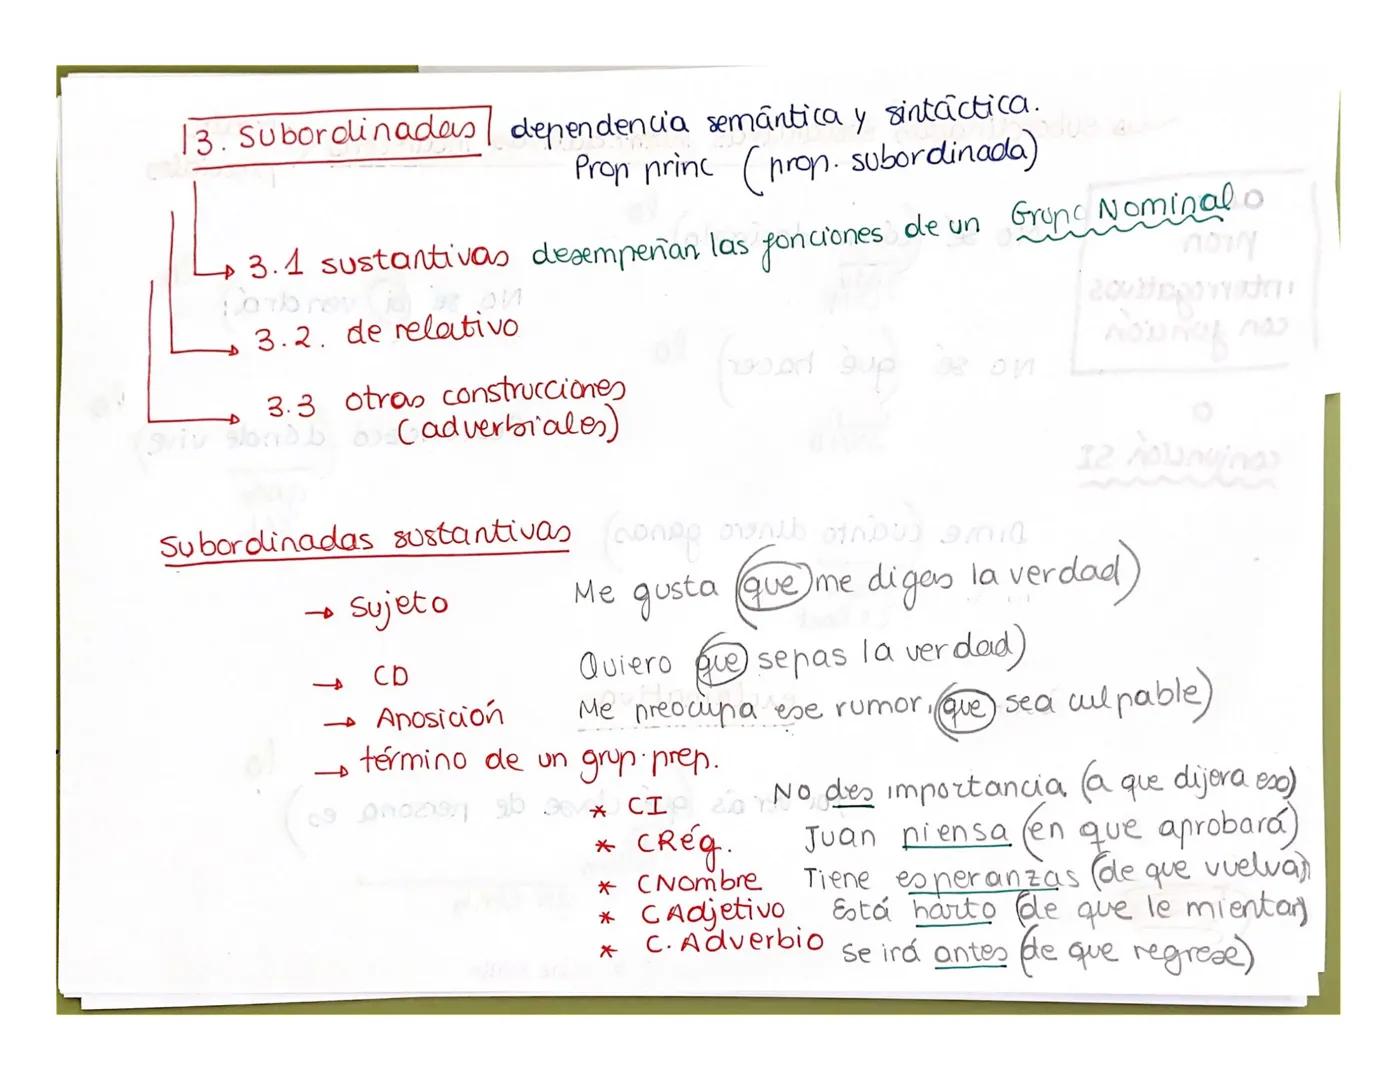 3. Subordinadas dependencia semántica y sintáctica.
Prop princ (prop. subordinada)
3.1 sustantivas desempeñan las fonciones de un Grupo Nominal
3.2. de relativo
3.3 otras construcciones
(adverbiales)
Subordinadas sustantivas
→ Sujeto Me gusta (que me digas la verdad)
→ CD Quiero (que sepas la verdad)
→ Aposición Me preocupa ese rumor, (que sea culpable)
→ término de un grup. prep.
* CI No des importancia (a que dijera eso)
* CRég. Juan piensa (en que aprobará)
* CNombre Tiene esperanzas (de que vuelva)
* CAdjetivo Está harto (de que le mientan)
* C. Adverbio Se irá antes (de que regrese)